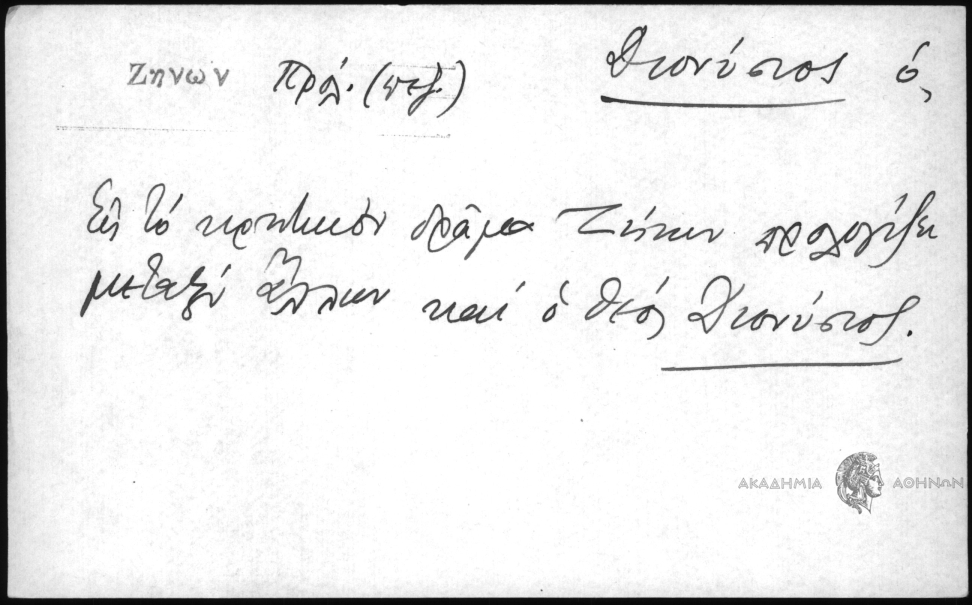 Ζηνων Πρόλ. (πεζ.) Διονύσιος ὁ,
Εἰς τό κρητικόν δρᾶμα Ζήνων προλογίζει
μεταξύ ἄλλων καί ὁ θεός Διονύσιος.
ΑΚΑΔΗΜΙΑ ΑΘΗΝΩΝ